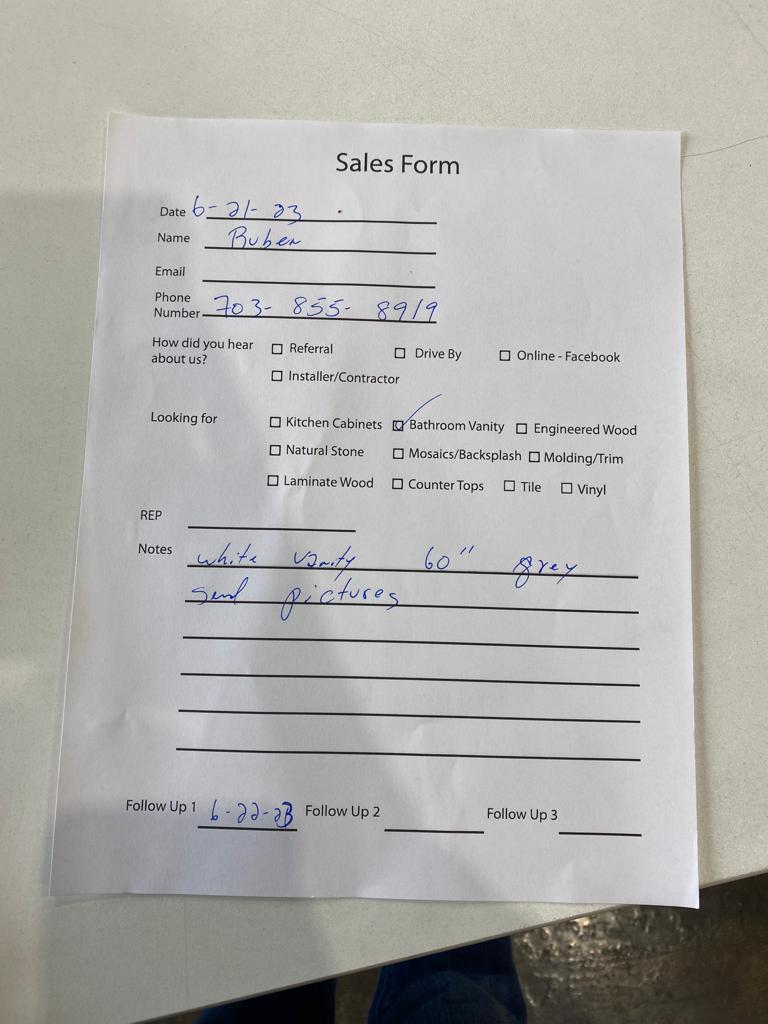 Sales Form
Date 6-21-23
Name Ruben
Email
Phone
Number 703-855-8919
How did you hear
about us?
☐ Referral ☐ Drive By ☐ Online - Facebook
☐ Installer/Contractor
Looking for
☐ Kitchen Cabinets ☑ Bathroom Vanity ☐ Engineered Wood
☐ Natural Stone ☐ Mosaics/Backsplash ☐ Molding/Trim
☐ Laminate Wood ☐ Counter Tops ☐ Tile ☐ Vinyl
REP
Notes white vanity 60" grey
send pictures
Follow Up 1 6-22-23 Follow Up 2 Follow Up 3